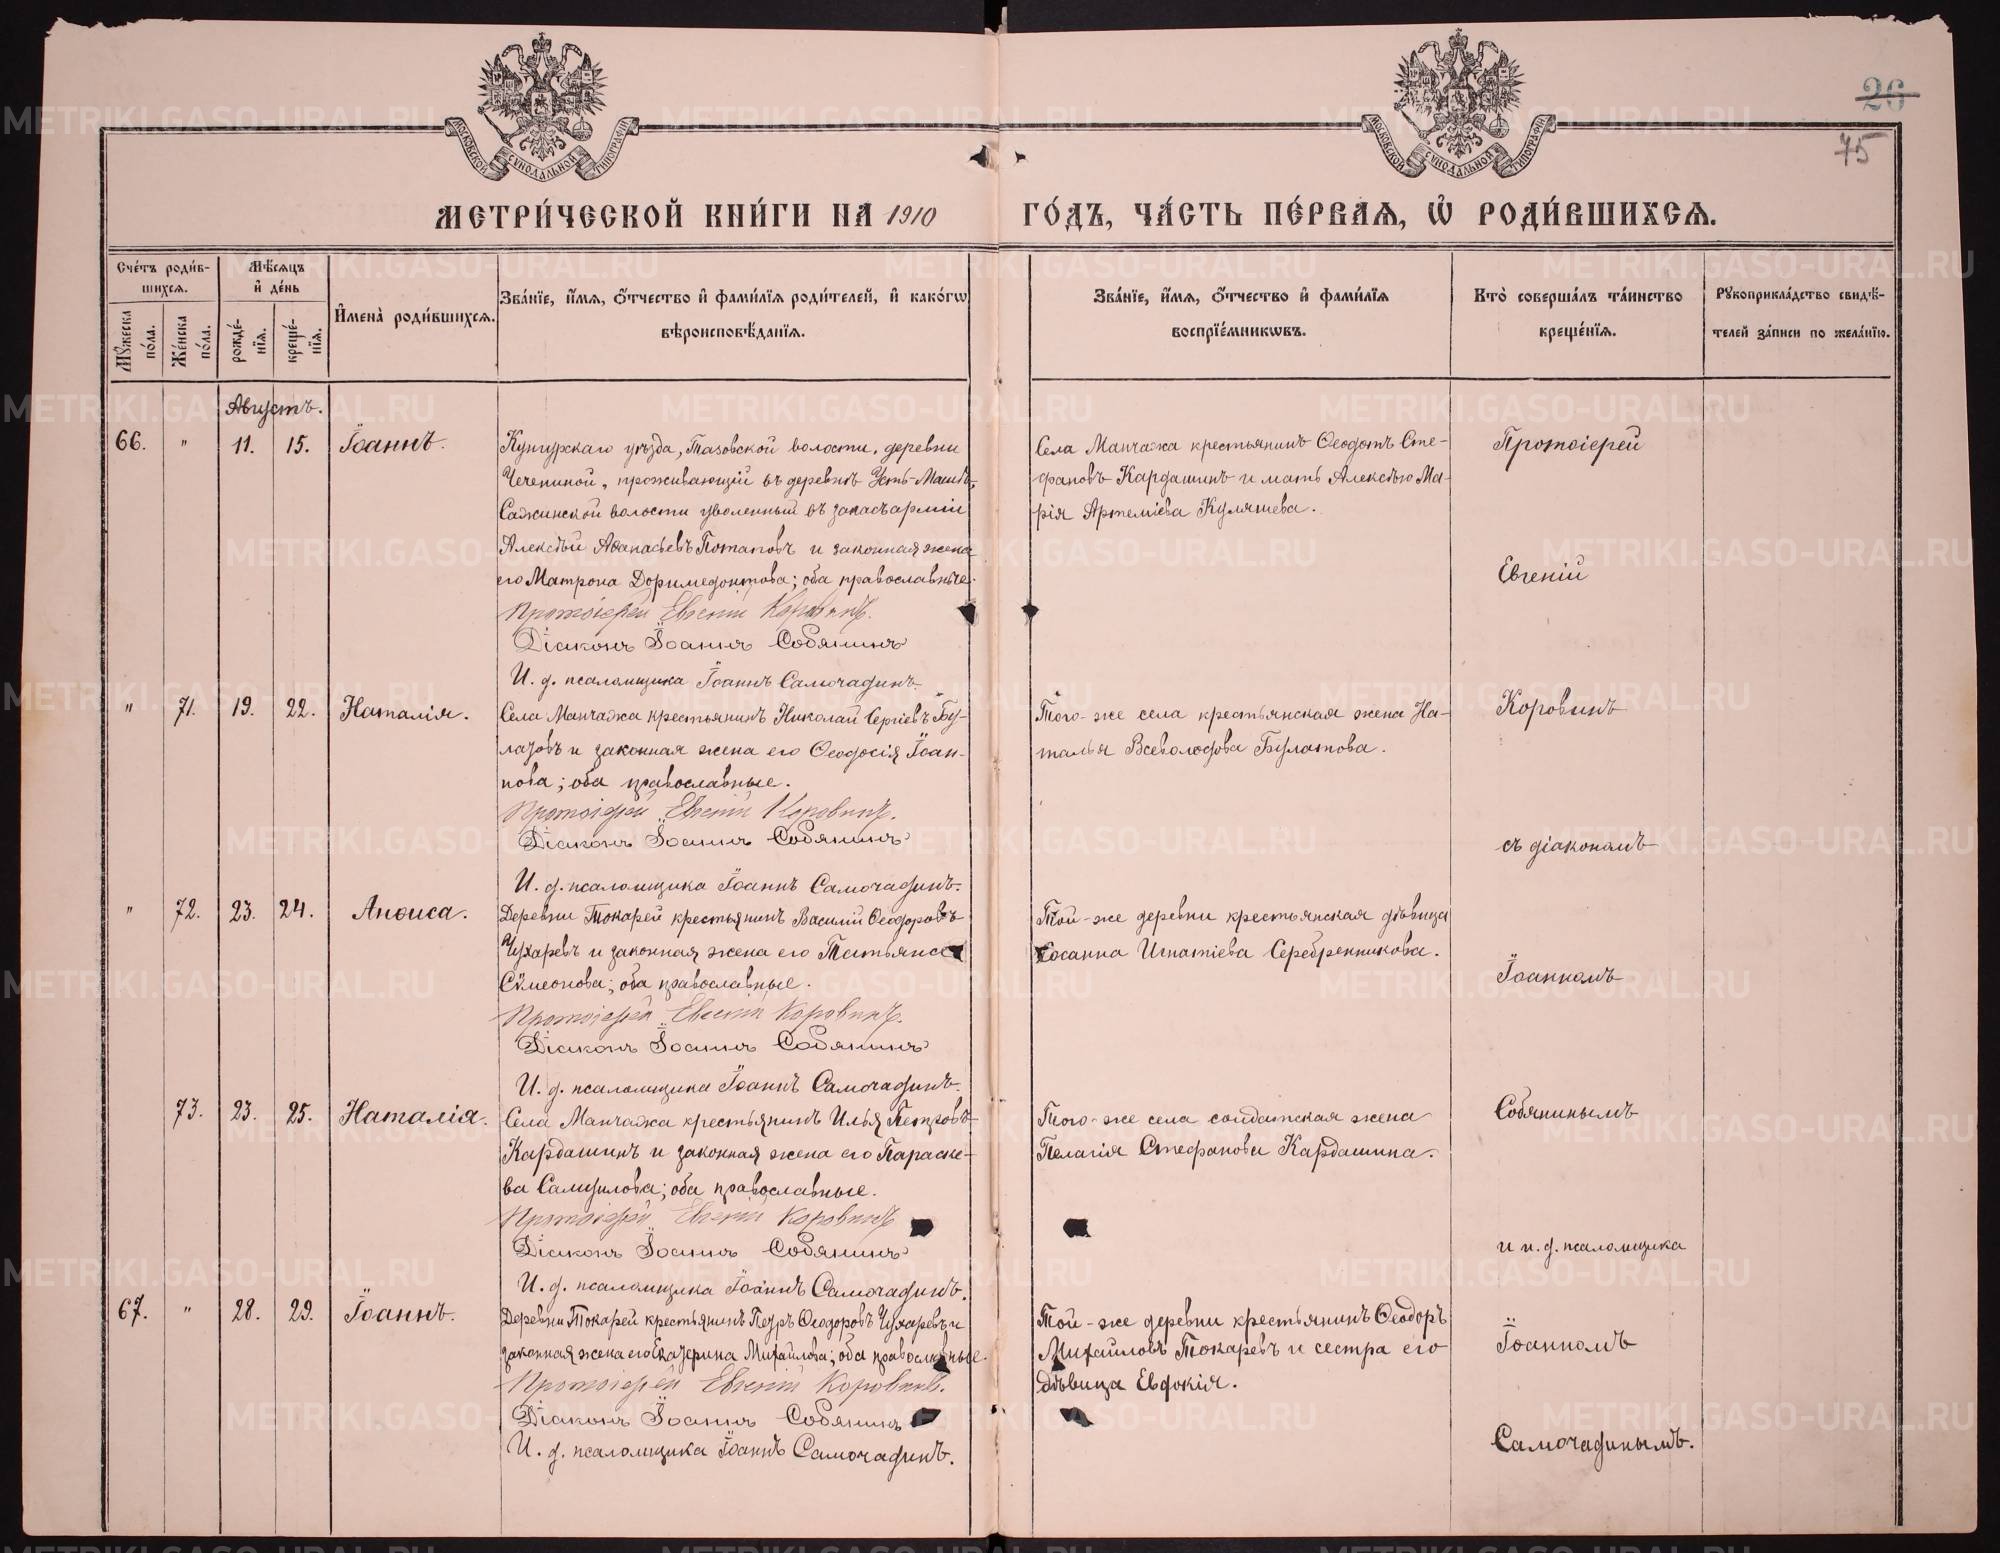 26
75
МОСКОВСКОЙ СУНОДАЛЬНОЙ ТИПОГРАФІИ
МОСКОВСКОЙ СУНОДАЛЬНОЙ ТИПОГРАФІИ
МЕТРИ́ЧЕСКОЙ КНИ́ГИ НА 1910 ГО́ДЪ, ЧА́СТЬ ПЕ́РВАѦ, Ѡ҆ РОДИ́ВШИХСѦ.
Сче́тъ роди́в-
шихсѧ.
Мꙋ́жеска по́ла.
Же́нска по́ла.
Мѣ́сѧцъ
и҆ де́нь
рожде́-
нїѧ.
креще́-
нїѧ.
И҆мена̀ роди́вшихсѧ.
Зва́нїе, и҆́мѧ, ѻ҆́тчество и҆ фами́лїѧ роди́телей, и҆ како́гѡ
вѣроисповѣ́данїѧ.
Зва́нїе, и҆́мѧ, ѻ҆́тчество и҆ фами́лїѧ
воспрїе́мникѡвъ.
Кто̀ соверша́лъ та́инство
креще́нїѧ.
Рꙋкоприкла́дство свидѣ́-
телей за́писи по жела́нїю.
Августъ.
66. " 11. 15. Іоаннъ.
Кунгурскаго уѣзда, Тазовской волости, деревни
Чечениной, проживающій въ деревнѣ Усть-Машѣ,
Сажинской волости уволенный въ запасъ арміи
Алексѣй Аѳанасьевъ Потаповъ и законная жена
его Матрона Доримедонтова; оба православные.
Протоіерей Евгеній Коровинъ.
Діаконъ Іоаннъ Собянинъ
И. д. псаломщика Іоаннъ Самочадинъ.
Села Манчажа крестьянинъ Ѳеодотъ Сте-
фановъ Кардашинъ и мать Алексѣю Ма-
рія Артеміева Куляшева.
" 71. 19. 22. Наталія.
Села Манчажа крестьянинъ Николай Сергіевъ Бу-
латовъ и законная жена его Ѳеодосія Іоан-
нова; оба православные.
Протоіерей Евгеній Коровинъ.
Діаконъ Іоаннъ Собянинъ
И. д. псаломщика Іоаннъ Самочадинъ.
Того-же села крестьянская жена На-
талья Всеволодова Булатова.
" 72. 23. 24. Анѳиса.
Деревни Токарей крестьянинъ Василій Ѳеодоровъ
Чухаревъ и законная жена его Татьяна
Сѵмеонова; оба православные.
Протоіерей Евгеній Коровинъ.
Діаконъ Іоаннъ Собянинъ
И. д. псаломщика Іоаннъ Самочадинъ.
Той-же деревни крестьянская дѣвица
Сосанна Игнатіева Серебренникова.
73. 23. 25. Наталія.
Села Манчажа крестьянинъ Илья Петровъ
Кардашинъ и законная жена его Параске-
ва Самуилова; оба православные.
Протоіерей Евгеній Коровинъ
Діаконъ Іоаннъ Собянинъ
И. д. псаломщика Іоаннъ Самочадинъ.
Того-же села солдатская жена
Пелагія Стефанова Кардашина.
67. " 28. 29. Іоаннъ.
Деревни Токарей крестьянинъ Петръ Ѳеодоровъ Чухаревъ и
законная жена его Екатерина Михайлова; оба православные.
Протоіерей Евгеній Коровинъ.
Діаконъ Іоаннъ Собянинъ
И. д. псаломщика Іоаннъ Самочадинъ.
Той-же деревни крестьянинъ Ѳеодоръ
Михайловъ Токаревъ и сестра его
дѣвица Евдокія.
Протоіерей
Евгеній
Коровинъ
съ діакономъ
Іоанномъ
Собянинымъ
и и. д. псаломщика
Іоанномъ
Самочадинымъ.
METRIKI.GASO-URAL.RU